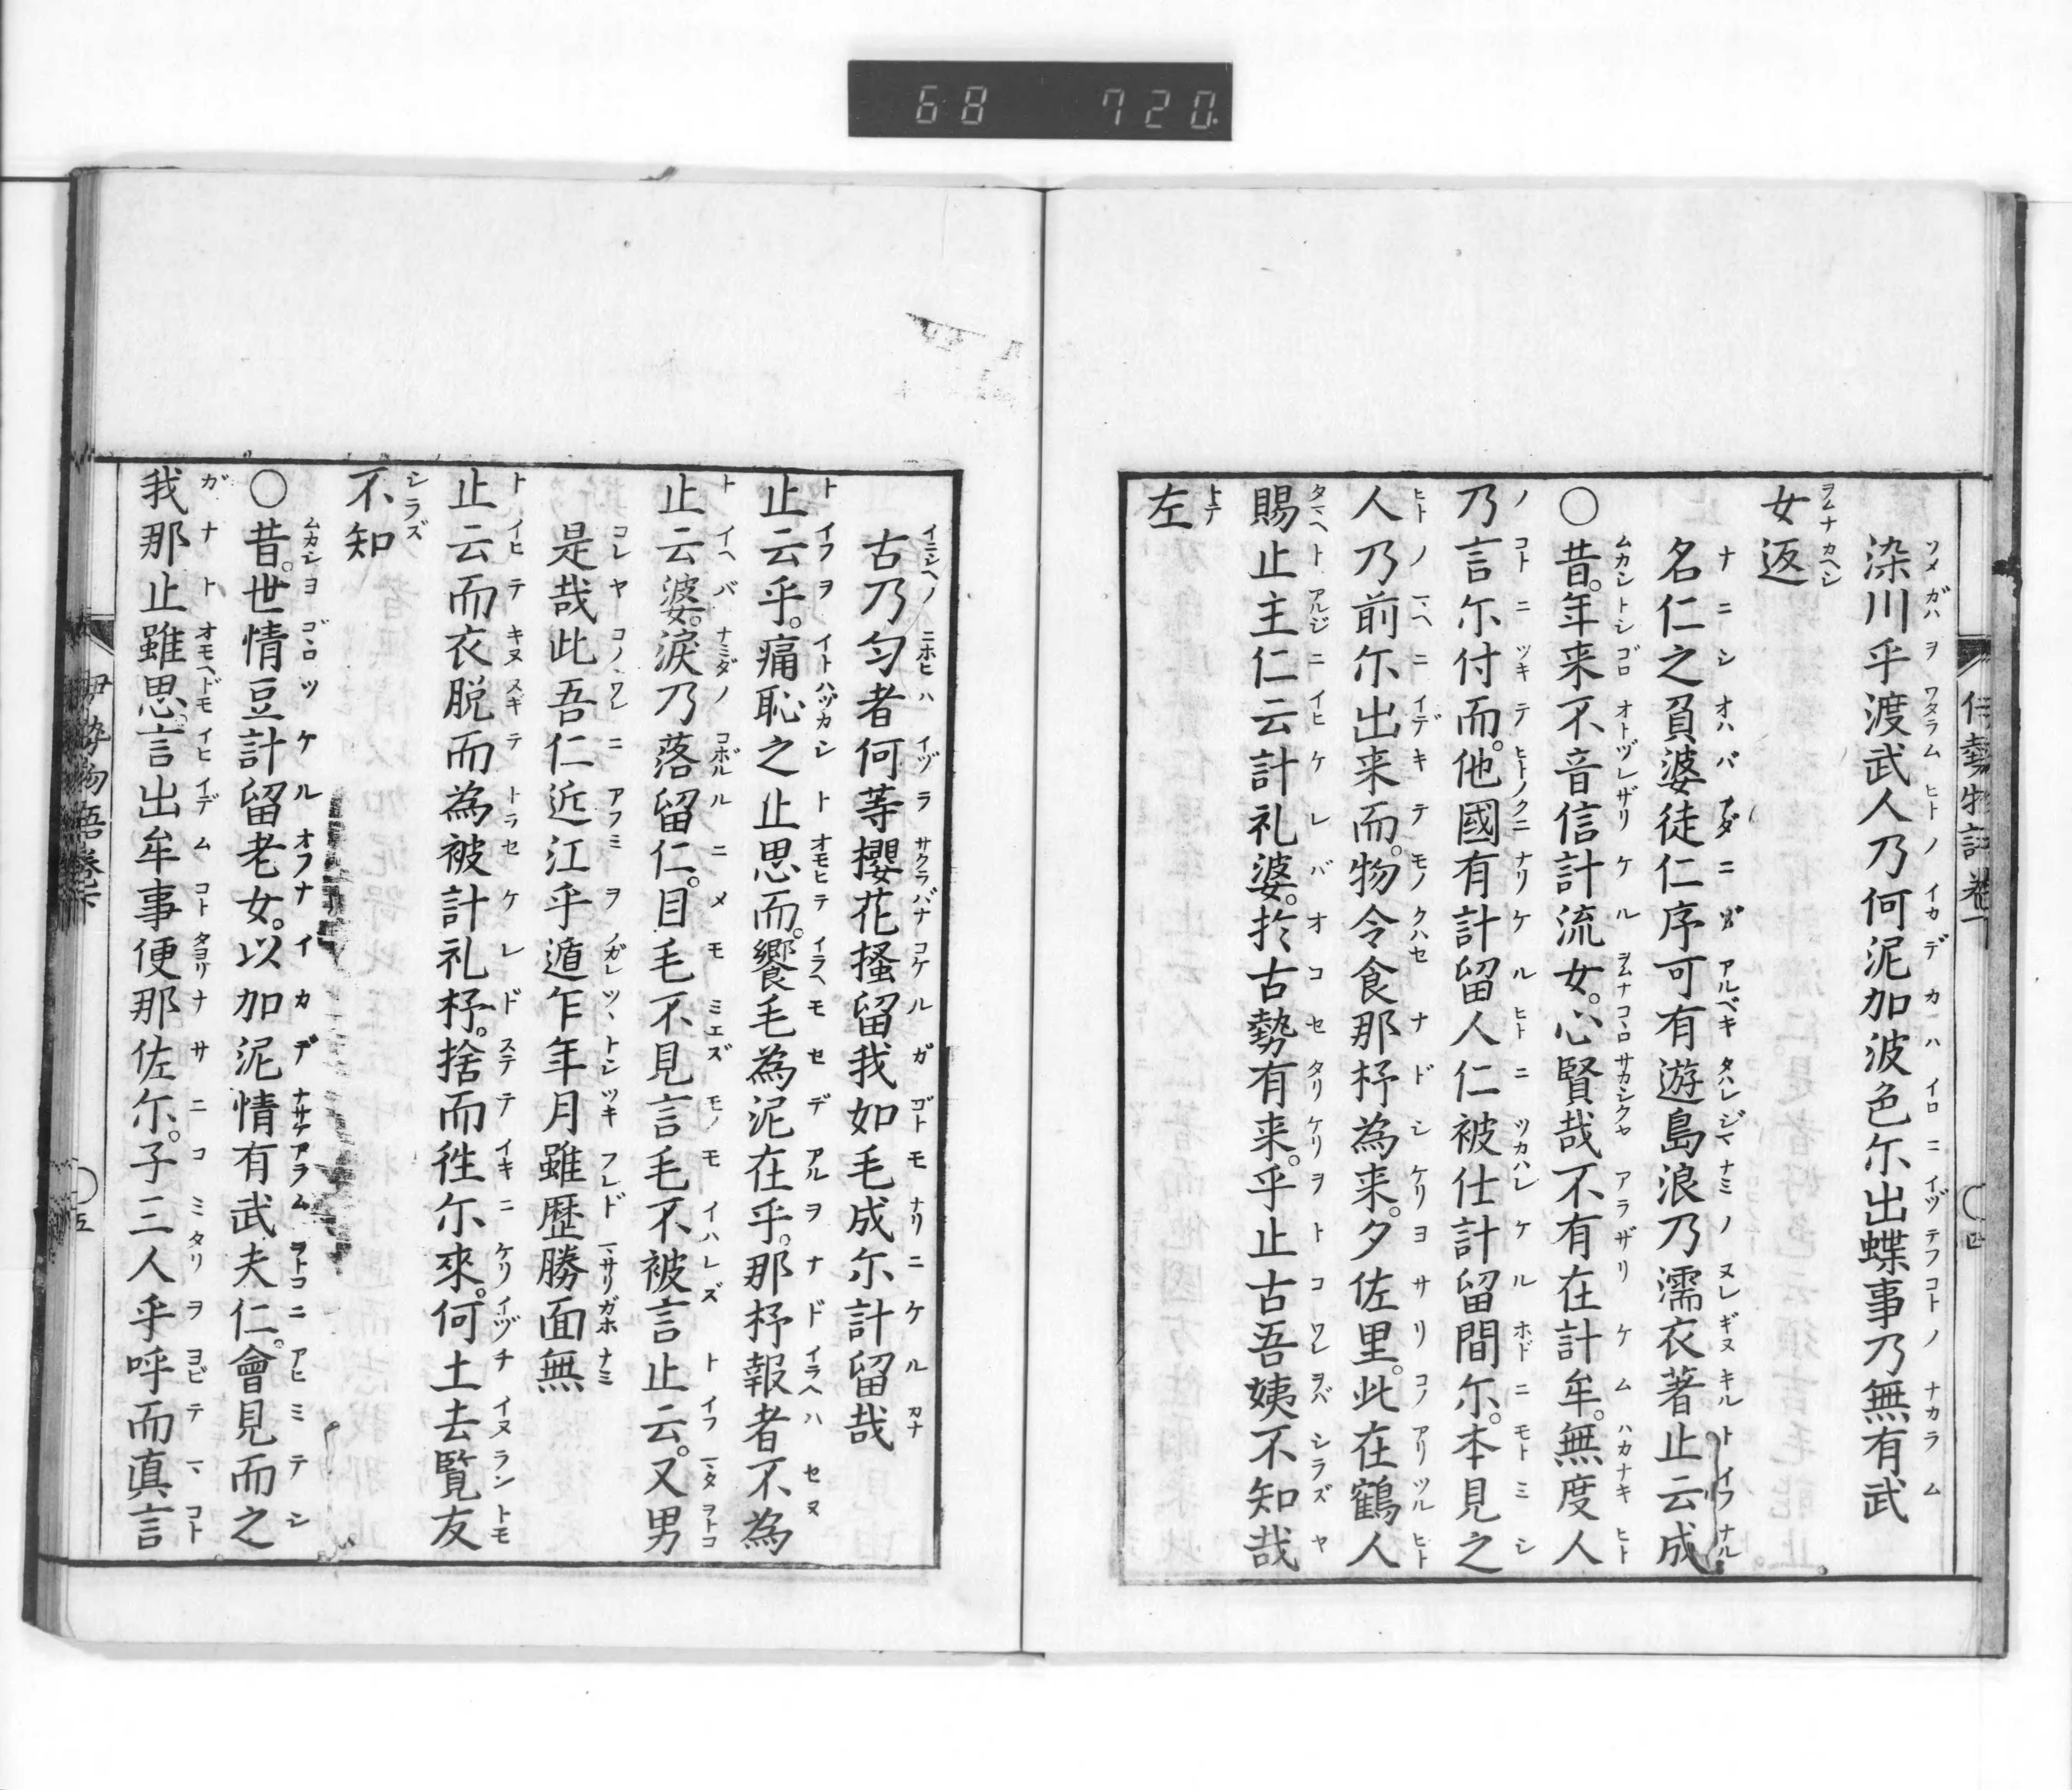 68 720.
染川乎渡武人乃何泥加波色尓出蝶事乃無有武
女返
名仁之負婆徒仁序可有遊島浪乃濡衣著止云成
○昔。年来不音信計流女。心賢哉不有在計牟。無度人
乃言尓付而。他國有計留人仁被仕計留間尓。本見之
人乃前尓出来而。物令食那杼為来。夕佐里。此在鶴人
賜止主仁云計礼婆。於古勢有来。乎止古吾姨不知哉
左
古乃匂者何等櫻花搔留我如毛成尓計留哉
止云乎。痛恥之止思而。饗毛為泥在乎。那杼報者不為
止云婆。淚乃落留仁。目毛不見言毛不被言止云。又男
是哉此吾仁近江乎遁乍年月雖歴勝面無
止云而衣脱而為被計礼杼。捨而徃尓來。何土去覧友
不知
○昔。世情豆計留老女。以加泥情有武夫仁。會見而之
我那止雖思。言出牟事便那佐尓。子三人乎呼而真言
伊勢物語巻下
○五